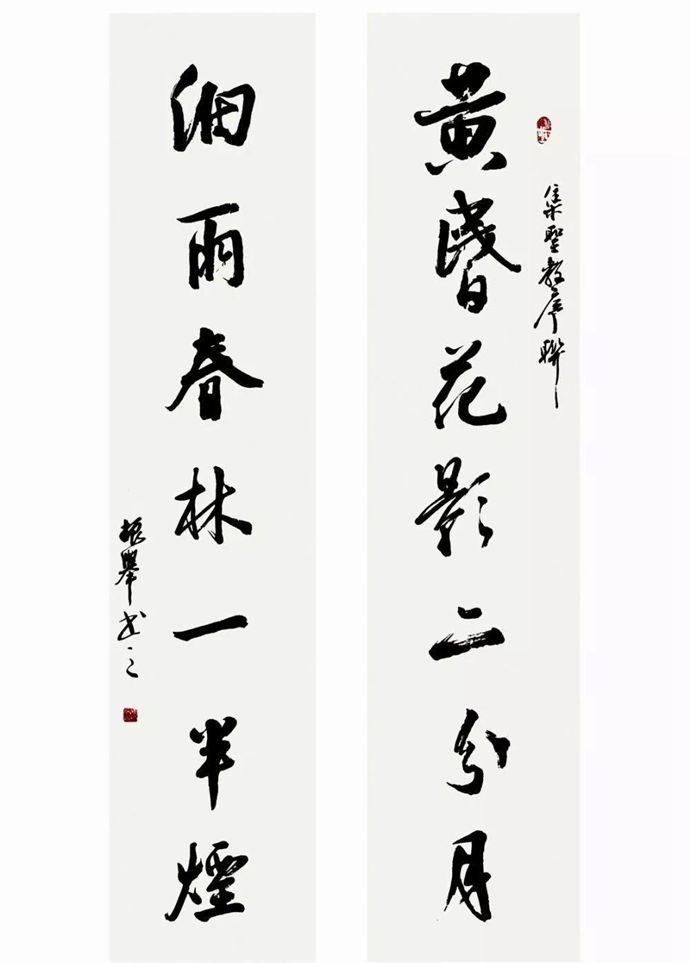 集聖教序聯
黃昬花影二分月
細雨春林一半煙
振舉書之